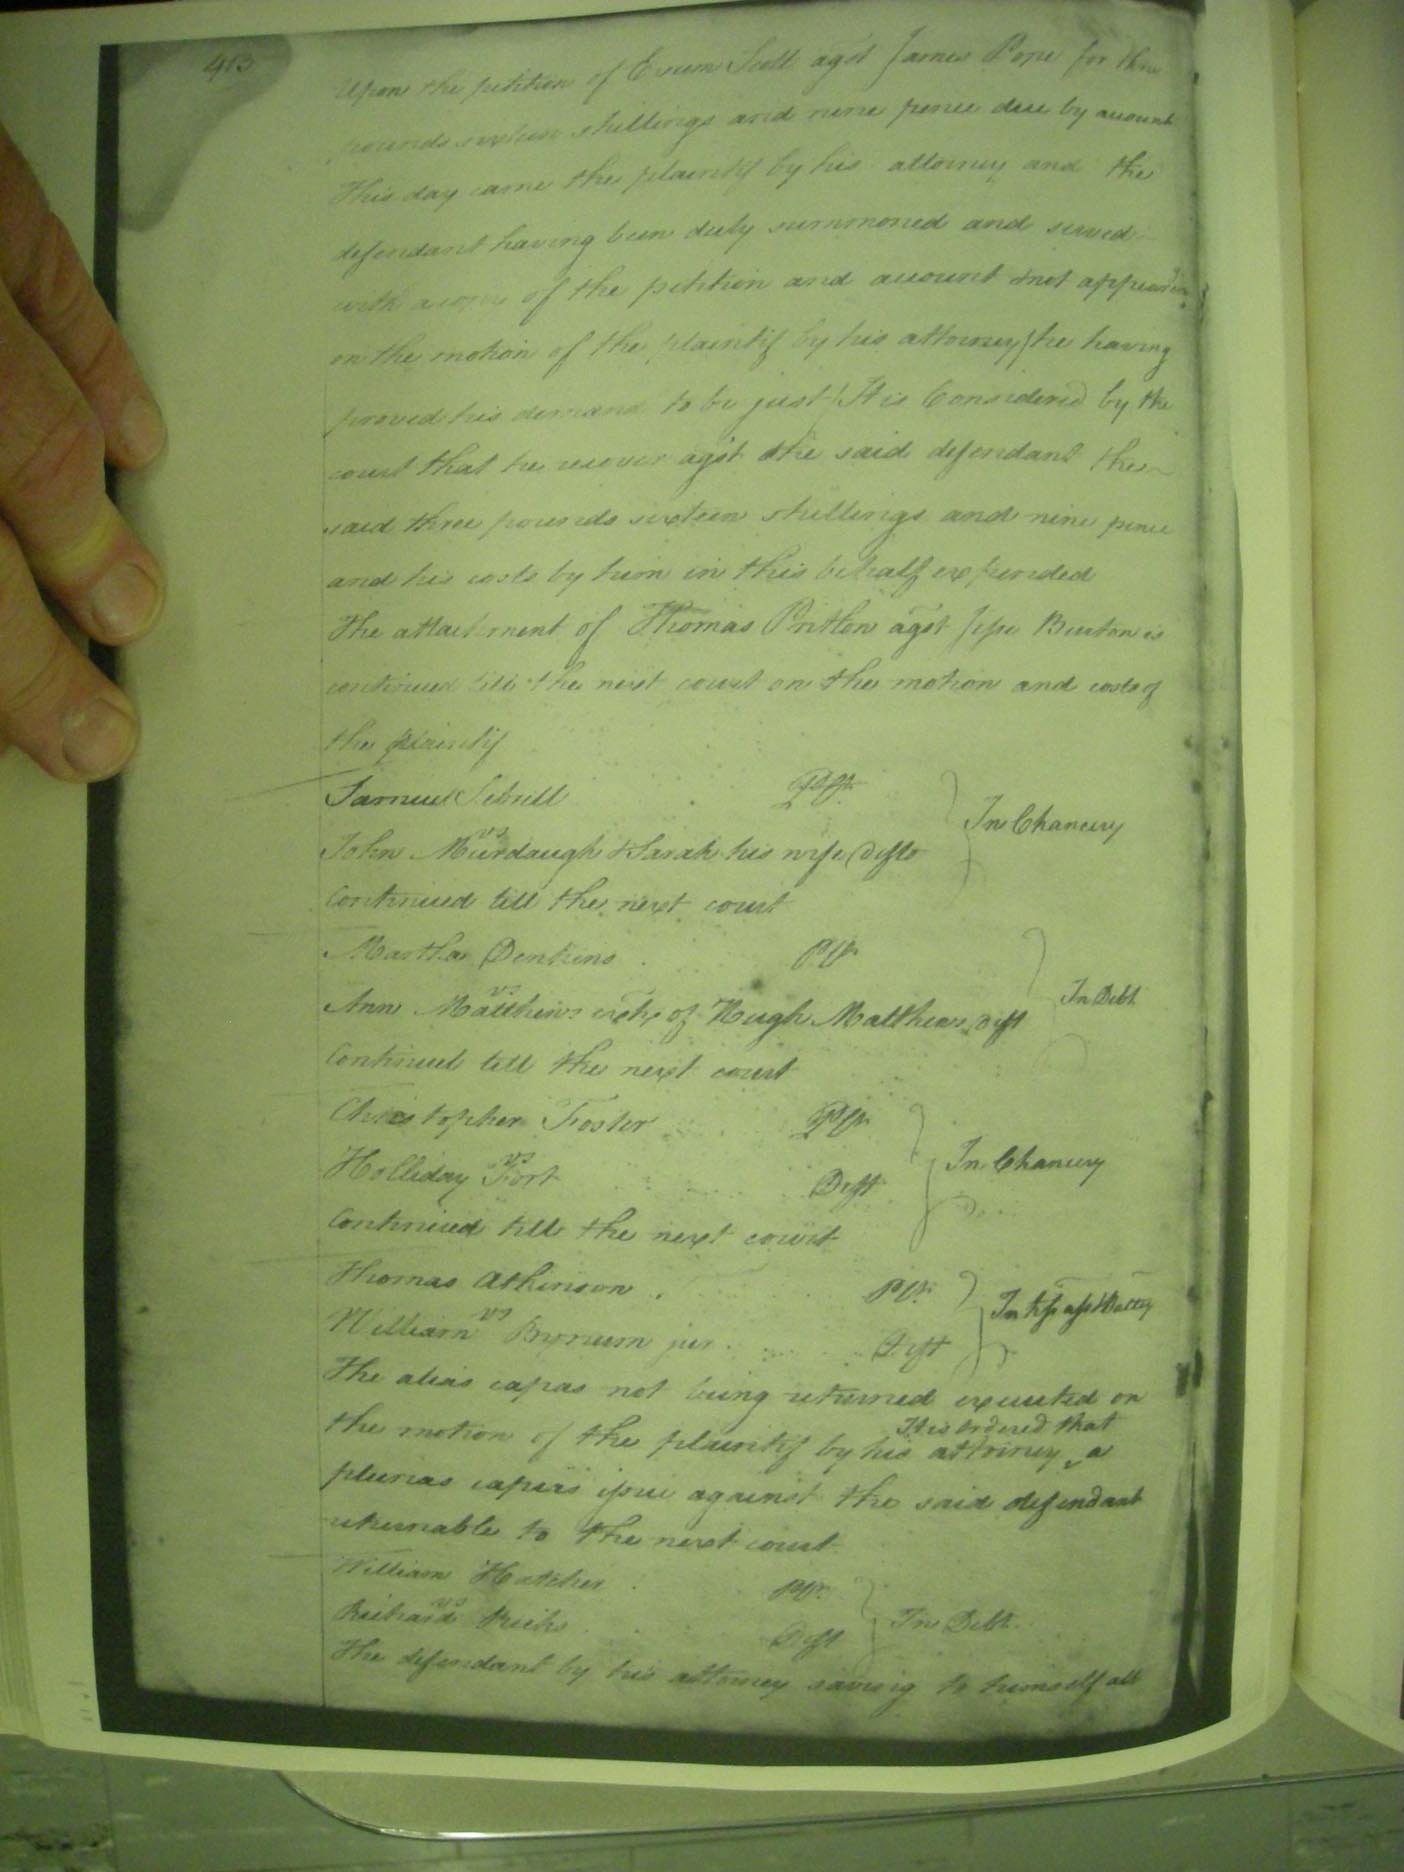 413
Upon the petition of Exum Scott agst James Pope for three
pounds sixteen shillings and nine pence due by account
This day came the plaintif by his attorney and the
defendant having been duly summoned and served
with a copie of the petition and account & not appearing
on the motion of the plaintif by his attorney (he having
proved his demand to be just) It is Considered by the
court that he recover agst the said defendant the
said three pounds sixteen shillings and nine pence
and his costs by him in this behalf expended
The attachment of Thomas Pritlon agst Jesse Burton is
continued till the next court on the motion and costs of
the plaintif
Samuel Sebrell Plt
vs In Chancery
John Murdaugh & Sarah his wife Defts
Continued till the next court
Martha Denkins Plt
vs In Debt
Ann Matthews extx of Hugh Matthews Deft
Continued till the next court
Christopher Foster Plt
vs In Chancery
Holliday Fort Deft
Continued till the next court
Thomas Atkinson Plt
vs
William Bynum jur Deft
The alias capias not being returned executed on
It is ordered that
the motion of the plaintif by his attorney ‸ a
plurias capias issue against the said defendant
returnable to the next court
William Hatcher Plt
vs In Debt
Richard Ricks Deft
The defendant by his attorney saving to himself all